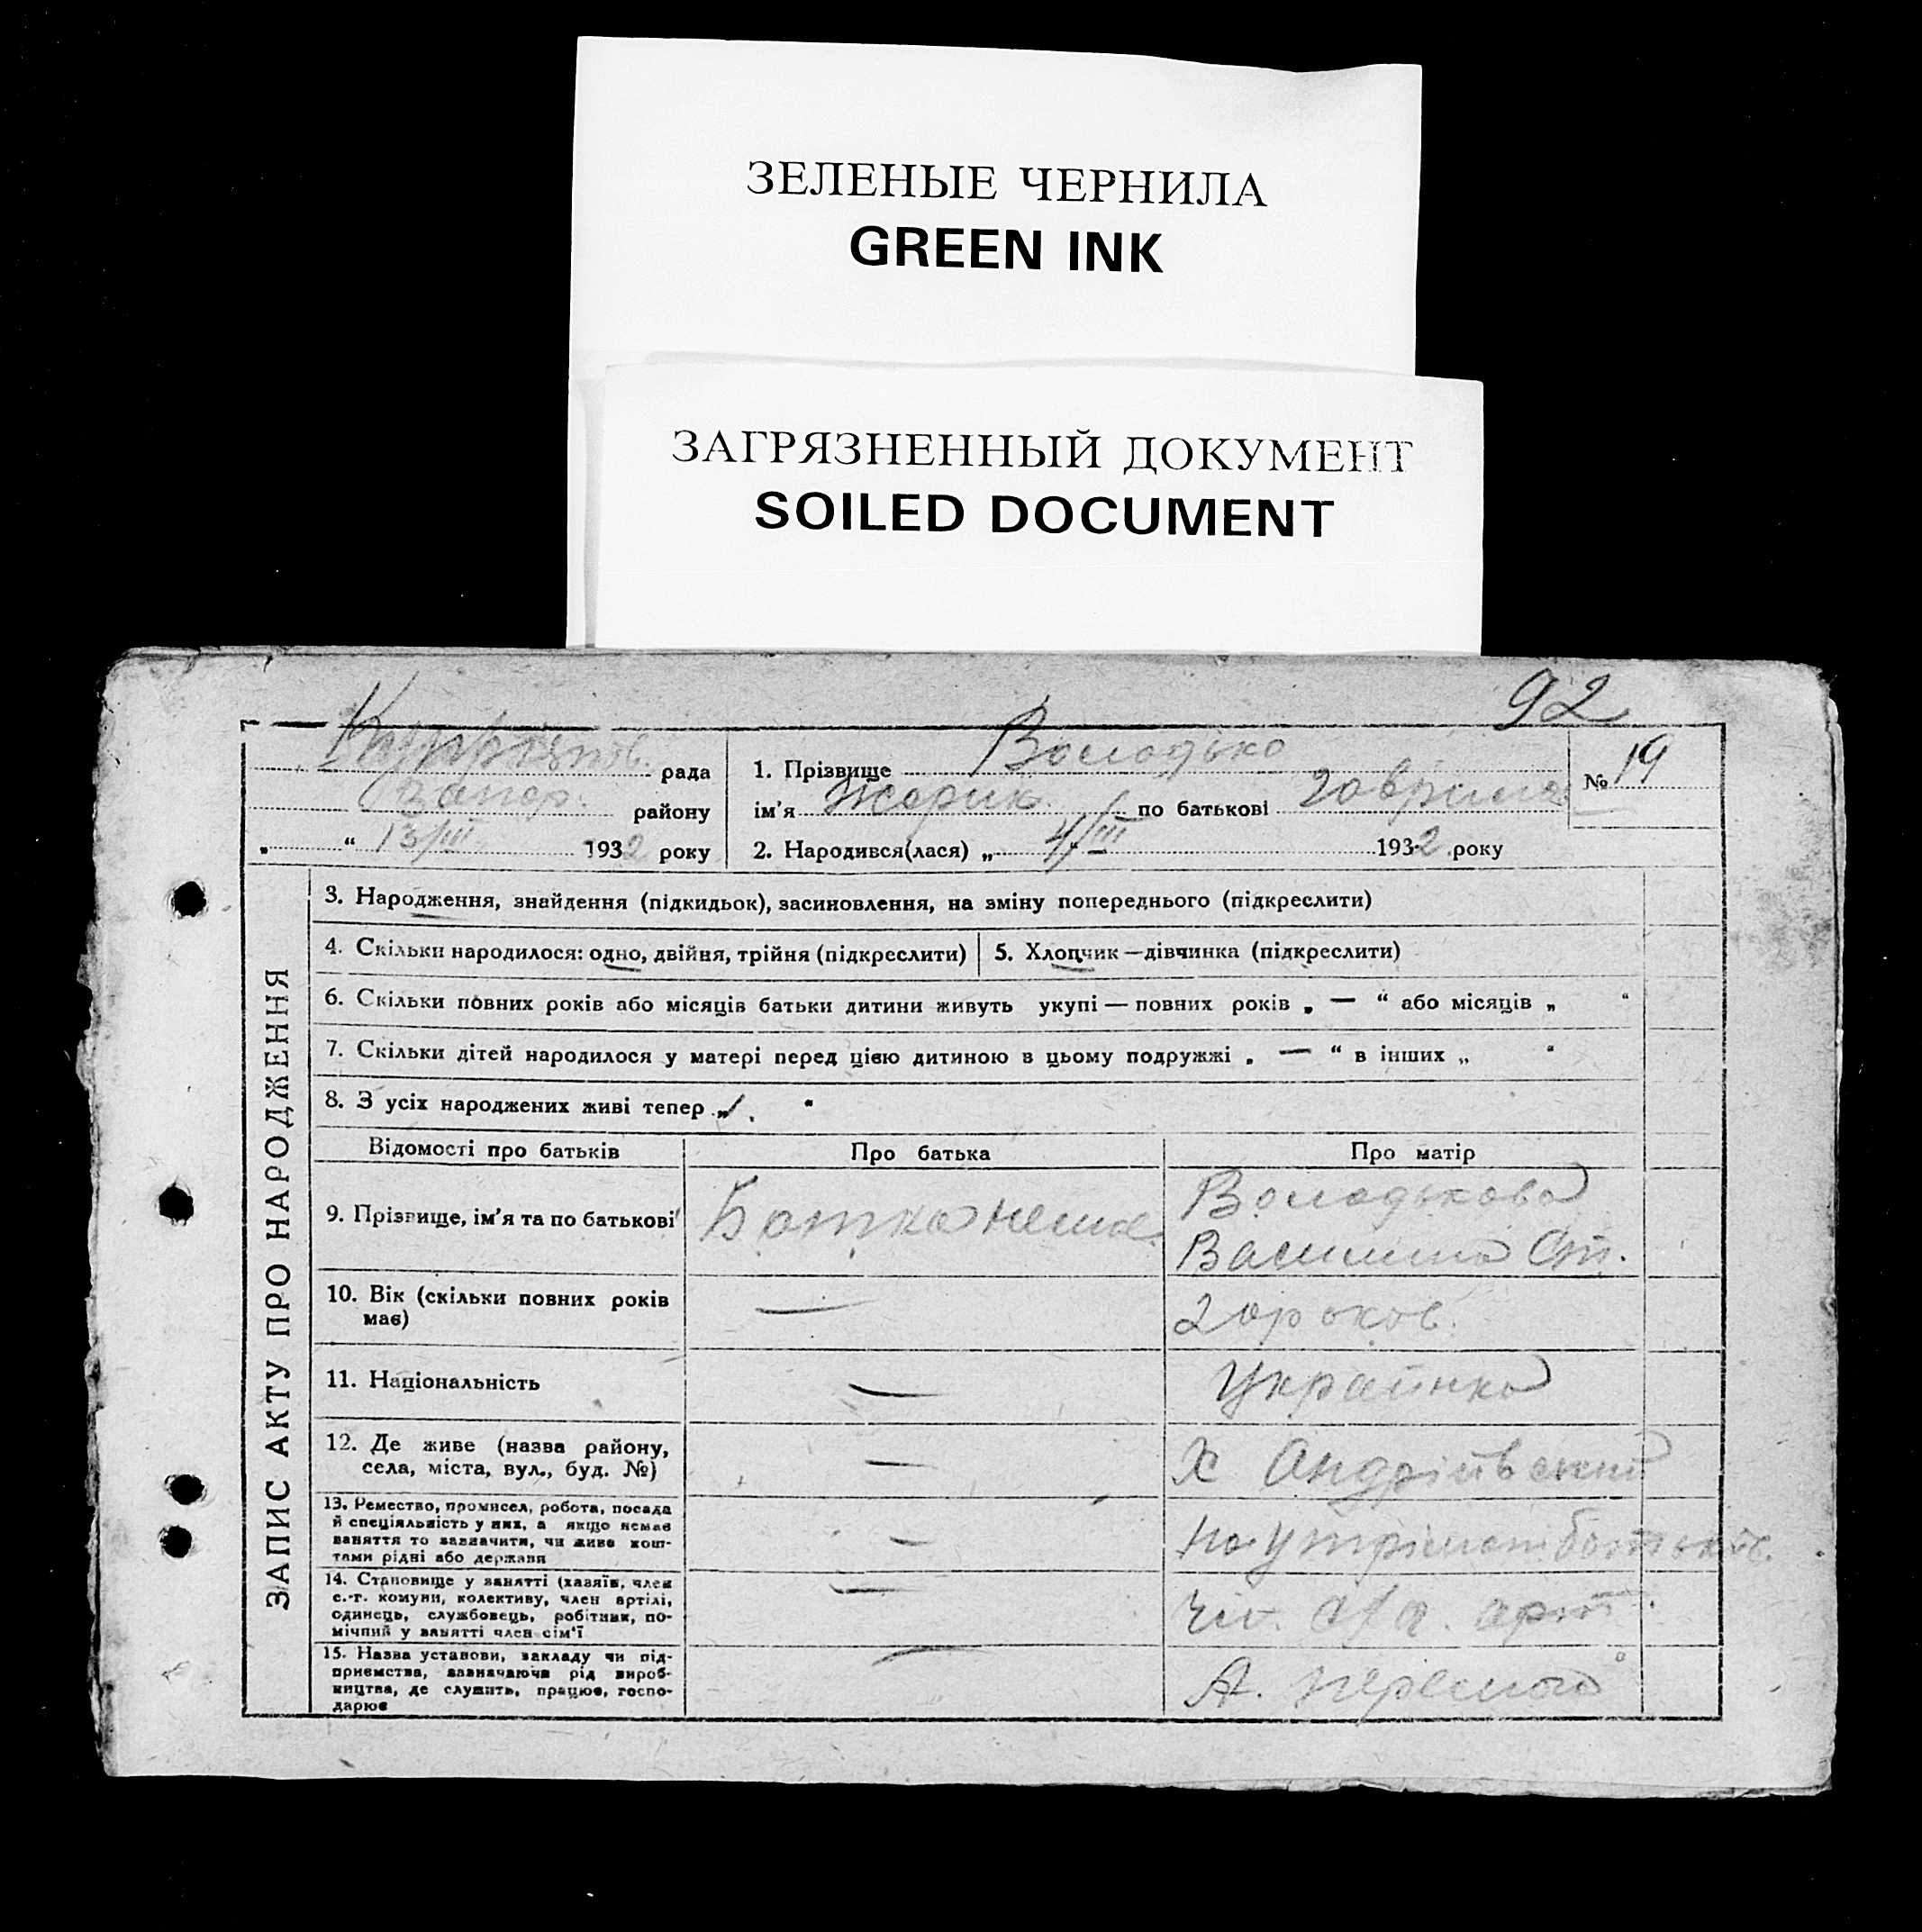 ЗЕЛЕНЫЕ ЧЕРНИЛА
GREEN INK
ЗАГРЯЗНЕННЫЙ ДОКУМЕНТ
SOILED DOCUMENT
92
рада
Запор. району
„ “ 13/III 1932 року
1. Прізвище Володько
ім’я Жорик по батькові Гаврилов
2. Народився(лася) „ 4/III 1932 року
№ 19
ЗАПИС АКТУ ПРО НАРОДЖЕННЯ
3. Народження, знайдення (підкидьок), засиновлення, на зміну попереднього (підкреслити)
4. Скільки народилося: одно, двійня, трійня (підкреслити)
5. Хлопчик — дівчинка (підкреслити)
6. Скільки повних років або місяців батьки дитини живуть укупі — повних років „ — “ або місяців „ “
7. Скільки дітей народилося у матері перед цією дитиною в цьому подружжі „ — “ в інших „ “
8. З усіх народжених живі тепер „ 1. “
Відомості про батьків
Про батька
Про матір
9. Прізвище, ім’я та по батькові
Батка нема
Володькова
Василина Ст.
10. Вік (скільки повних років
має)
—
20 роков.
11. Національність
—
Украинка
12. Де живе (назва району,
села, міста, вул., буд. №)
—
Х Андріївский
13. Ремество, промисел, робота, посада
й спеціяльність у них, а якщо немає
заняття то зазначити, чи живе кош-
тами рідні або держави
—
на утріман батьков.
14. Становище у занятті (хазяїн, член
с.-г. комуни, колективу, член артілі,
одинець, службовець, робітник, по-
мічний у занятті член сім’ї
—
чл. с/г. арт.
15. Назва установи, закладу чи під-
приємства, зазначаючи рід вироб-
ництва, де служить, працює, госпо-
дарює
—